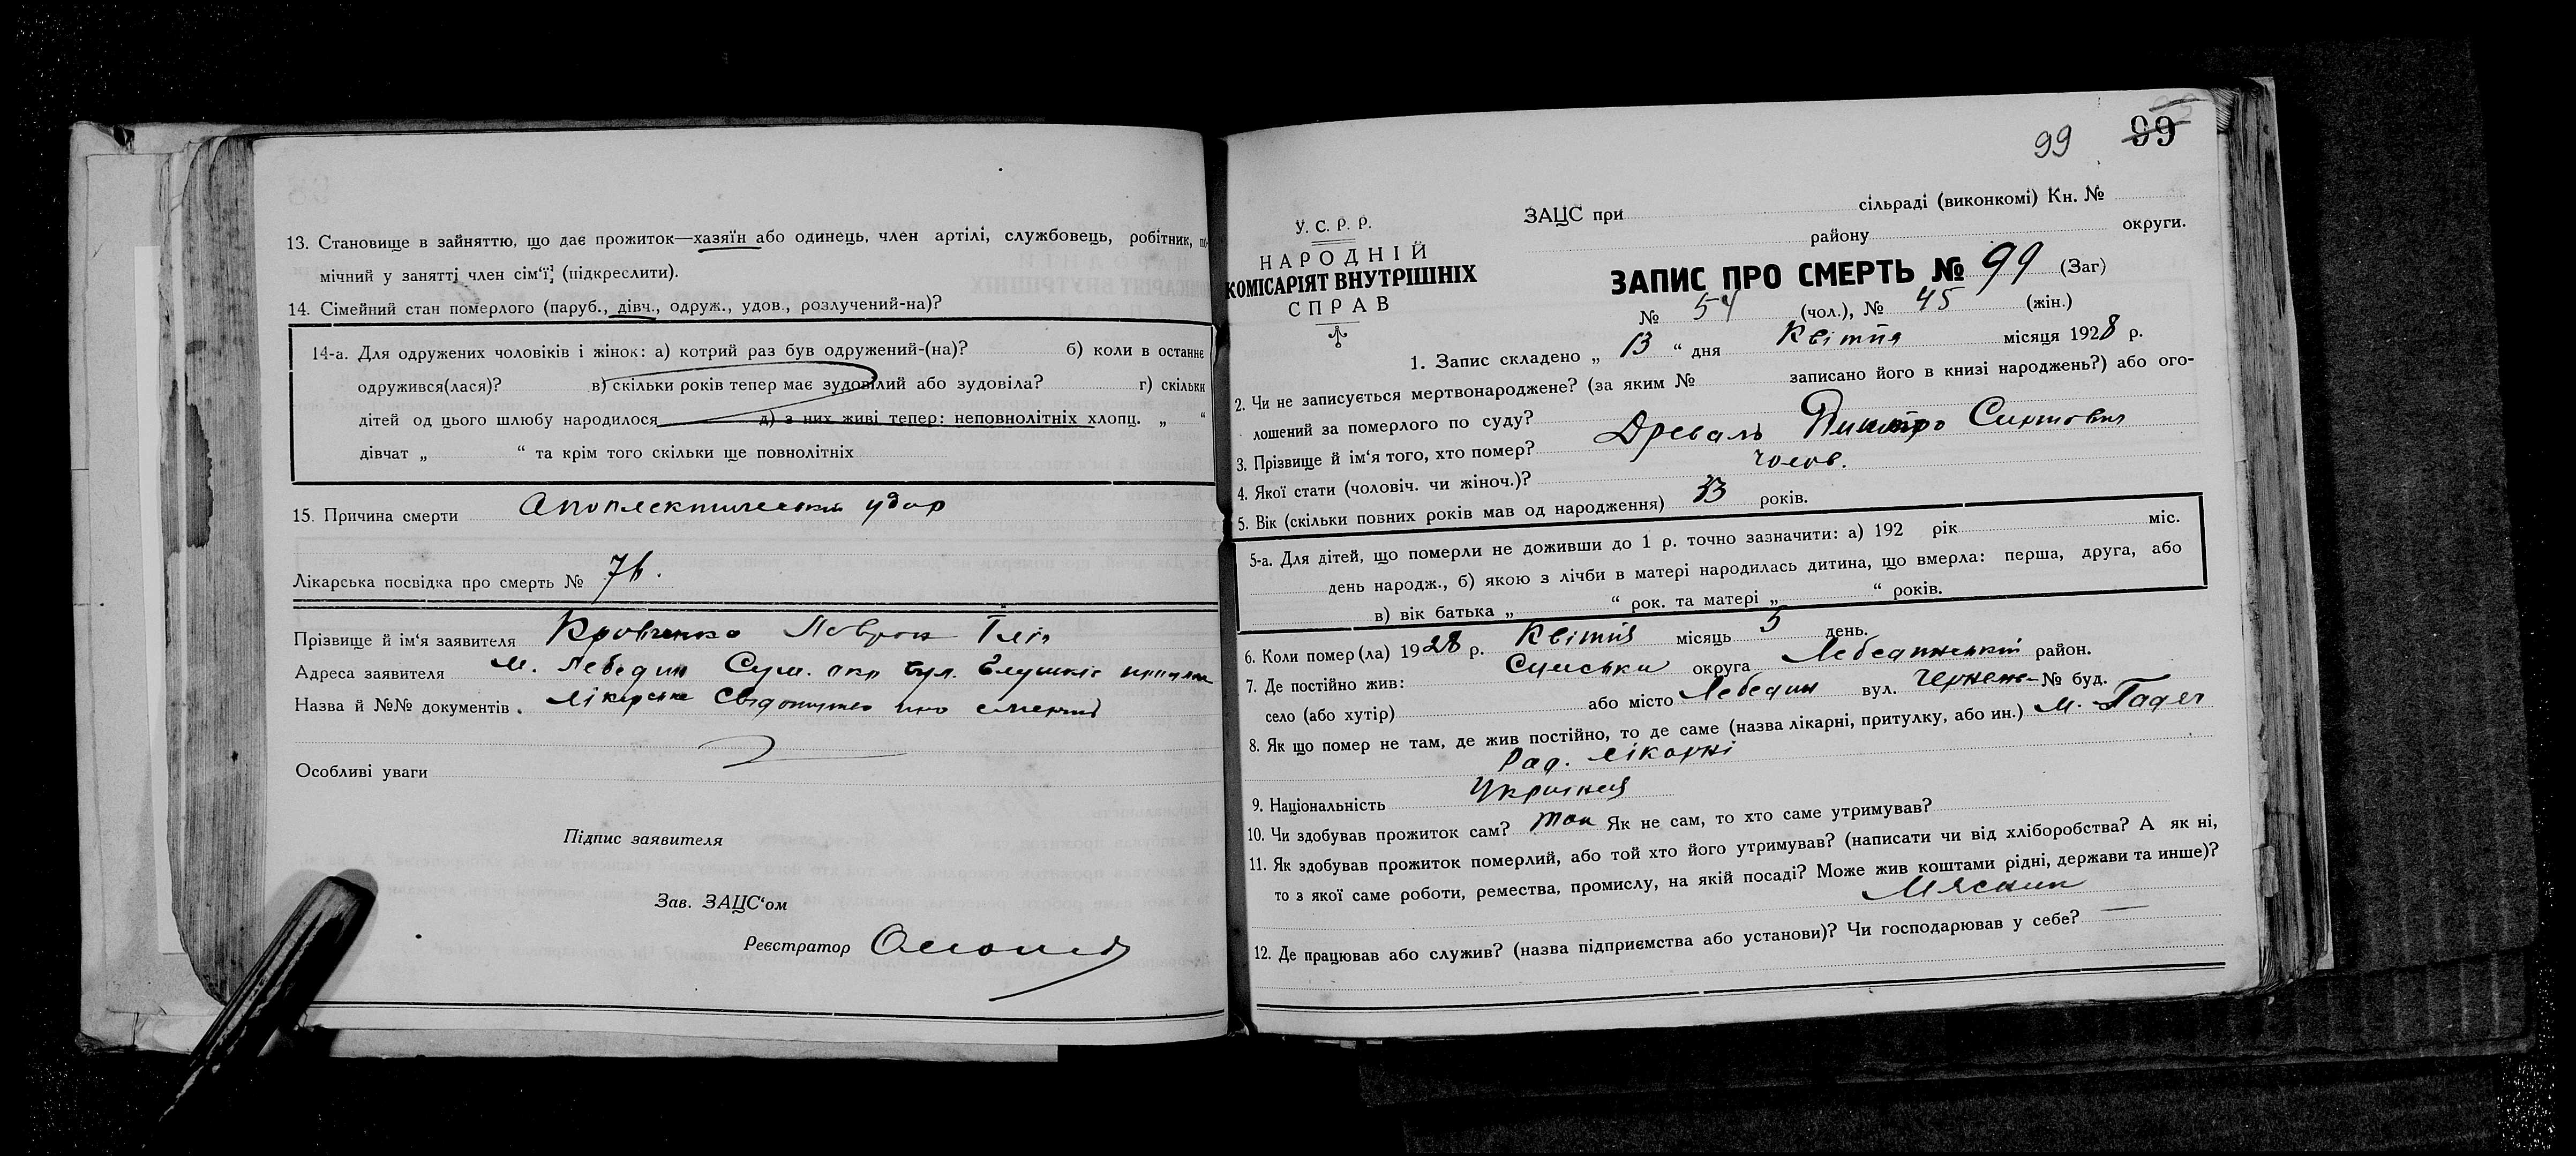 13. Становище в зайняттю, що дає прожиток—хазяїн або одинець, член артілі, службовець, робітник, по-
мічний у занятті член сім'ї, (підкреслити).
14. Сімейний стан померлого (паруб., дівч., одруж., удов., розлучений-на)?
14-а. Для одружених чоловіків і жінок: а) котрий раз був одружений-(на)? б) коли в останнє
одружився(лася)? в) скільки років тепер має зудовілий або зудовіла? г) скільки
дітей од цього шлюбу народилося д) з них живі тепер: неповнолітніх хлопц. „ “
дівчат „ “ та крім того скільки ще повнолітніх
15. Причина смерти Апоплектический удар
Лікарська посвідка про смерть № 76.
Прізвище й ім'я заявителя Кравченко
Адреса заявителя м. Лебедин Сум. окр вул.
Назва й №№ документів. Лікарське про
Особливі уваги
Підпис заявителя
Зав. ЗАЦС'ом
Реєстратор
99 99
ЗАЦС при сільраді (виконкомі) Кн. №
району округи.
У. С. Р. Р.
НАРОДНІЙ
КОМІСАРІЯТ ВНУТРІШНІХ
СПРАВ
ЗАПИС ПРО СМЕРТЬ № 99 (Заг)
№ 54 (чол.), № 45 (жін.)
1. Запис складено „ 13 “ дня Квітня місяця 1928 р.
2. Чи не записується мертвонароджене? (за яким № записано його в книзі народжень?) або ого-
лошений за померлого по суду?
3. Прізвище й ім'я того, хто помер? Древаль Дмитро
4. Якої стати (чоловіч. чи жіноч.)? чолов.
5. Вік (скільки повних років мав од народження) 33 років.
5-а. Для дітей, що померли не доживши до 1 р. точно зазначити: а) 192 рік міс.
день народж., б) якою з лічби в матері народилась дитина, що вмерла: перша, друга, або
в) вік батька „ “ рок. та матері „ “ років.
6. Коли помер(ла) 1928 р. Квітня місяць 5 день.
7. Де постійно жив: Сумська округа Лебединський район.
село (або хутір) або місто Лебедин вул. № буд.
8. Як що помер не там, де жив постійно, то де саме (назва лікарні, притулку, або ин.) м. Гадяч
Рад. лікарні
9. Національність Українец
10. Чи здобував прожиток сам? так Як не сам, то хто саме утримував?
11. Як здобував прожиток померлий, або той хто його утримував? (написати чи від хліборобства? А як ні,
то з якої саме роботи, ремества, промислу, на якій посаді? Може жив коштами рідні, держави та инше)?
Мясник
12. Де працював або служив? (назва підприємства або установи)? Чи господарював у себе? —